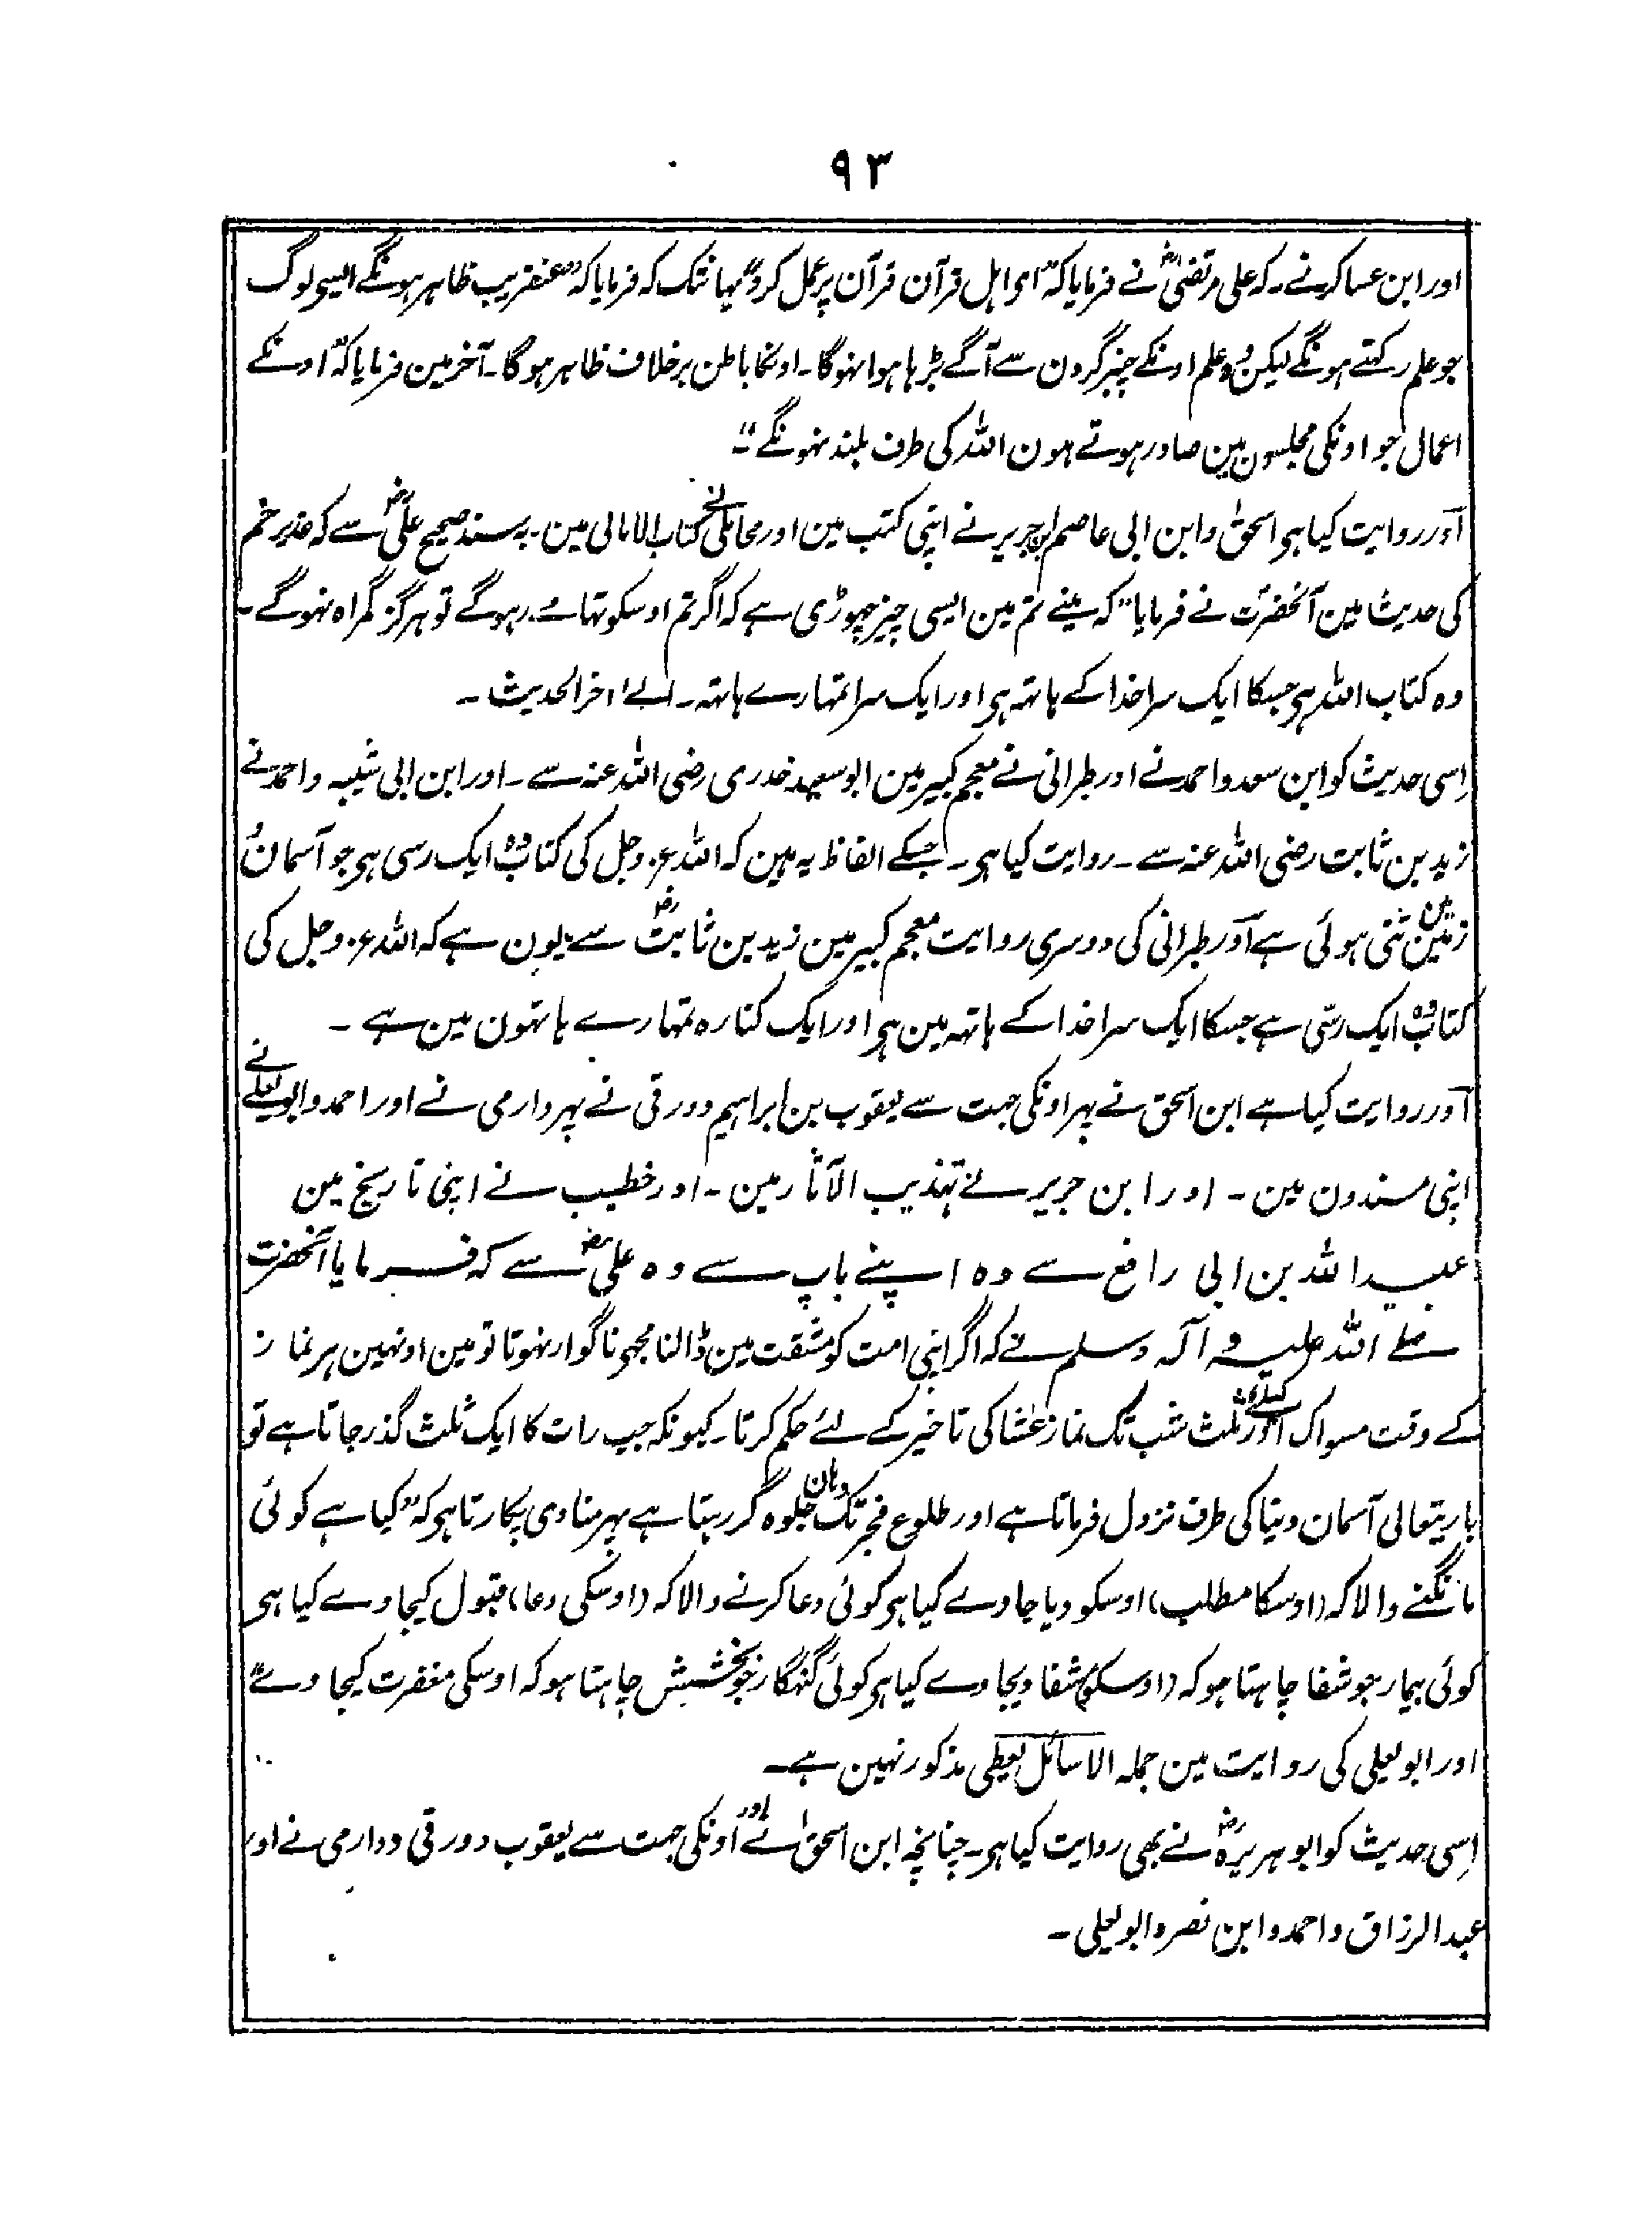 ۹۳
اور ابن عساکر نے۔ کہ علی مرتضیٰؓ نے فرمایا کہ "ای اہل قرآن قرآن پر عمل کرو" یہانتک کہ فرمایا کہ "عنقریب ظاہر ہونگے ایسے لوگ
جو علم رکہتے ہونگے لیکن وہ علم اونکے چنبر گردن سے آگے بڑہا ہوا نہوگا۔ اونکا باطن برخلاف ظاہر ہوگا۔ آخر مین فرمایا کہ "اونکے
اعمال جو اونکی مجلسون مین صادر ہوتے ہون اللہ کی طرف بلند نہونگے"۔
اور روایت کیا ہی اسحٰق و ابن ابی عاصم ابن جریر نے اپنی کتب مین اور محاملی نے کتاب الامالی مین۔ بسند صحیح علیؓ سے کہ غدیر خم
کی حدیث مین آنحضرتؐ نے فرمایا "کہ مینے تم مین ایسی چیز چہوڑی ہے کہ اگر تم اوسکو تہامے رہوگے تو ہرگز گمراہ نہوگے۔
وہ کتاب اللہ ہی جسکا ایک سرا خدا کے ہاتہ ہی اور ایک سرا تمہارے ہاتہ۔ الے اخر الحدیث۔
اِسی حدیث کو ابن سعد و احمد نے اور طبرانی نے معجم کبیر مین ابو سعید خدری رضی اللہ عنہ سے۔ اور ابن ابی شیبہ و احمد نے
زید بن ثابت رضی اللہ عنہ سے۔ روایت کیا ہی۔ جسکے الفاظ یہ ہین کہ اللہ عز وجل کی کتاب وہ ایک رسی ہی جو آسمان و
زمین مین تنی ہوئی ہے اور طبرانی کی دوسری روایت معجم کبیر مین زید بن ثابتؓ سے یون ہے کہ اللہ عز وجل کی
کتاب وہ ایک رسّی ہے جسکا ایک سرا خدا کے ہاتہ مین ہی اور ایک کنارہ تمہارے ہاتہون مین ہے۔
اور روایت کیا ہے ابن اسحق نے پہر اونکی جہت سے یعقوب بن ابراہیم دورقی نے پہر دارمی نے اور احمد و ابو یعلے نے
اپنی مسندون مین۔ اور ابن جریر نے تہذیب الآثار مین۔ اور خطیب نے اپنی تاریخ مین
عبید اللہ بن ابی رافع سے وہ اپنے باپ سے وہ علیؓ سے کہ فرمایا آنحضرت
صلے اللہ علیہ و آلہ وسلم نے کہ اگر اپنی امت کو مشقت مین ڈالنا مجہی ناگوار نہوتا تو مین اونہین ہر نماز
کے وقت مسواک کیلئے اور ثلث شب تک نماز عشا کی تاخیر کے لئے حکم کرتا۔ کیونکہ جب رات کا ایک ثلث گذر جاتا ہے تو
باریتعالی آسمان دنیا کی طرف نزول فرماتا ہے اور طلوع فجر تک وہان جلوہ گر رہتا ہے پہر منادی پکارتا ہی کہ "کیا ہے کوئی
مانگنے والا کہ (اوسکا مطلب) اوسکو دیا جاوے کیا ہی کوئی دعا کرنے والا کہ (اوسکی دعا) قبول کیجاوے کیا ہی
کوئی بیمار جو شفا چاہتا ہو کہ (اوسکو) شفا دیجاوے کیا ہی کوئی گنہگار جو بخشش چاہتا ہو کہ اوسکی مغفرت کیجاوے"
اور ابو یعلی کی روایت مین جملہ الا سائل یعطی مذکور نہین ہے۔
اِسی حدیث کو ابو ہریرہؓ نے بھی روایت کیا ہی۔ چنانچہ ابن اسحٰق نے اور اونکی جہت سے یعقوب دورقی و دارمی نے اور
عبد الرزاق و احمد و ابن نصر و ابو یعلی۔